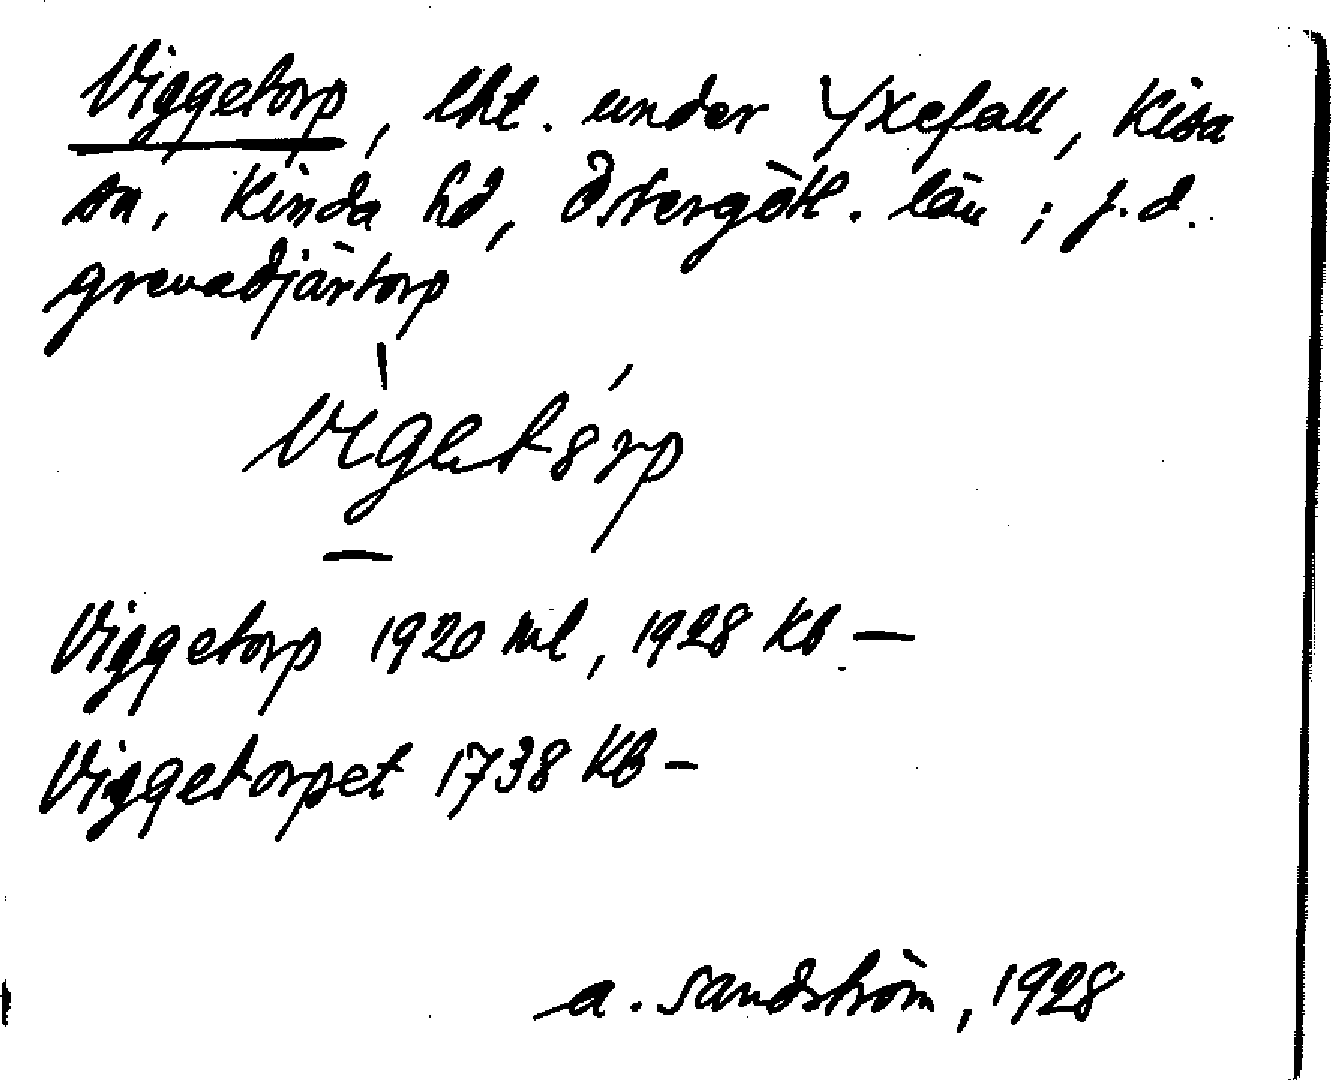 Viggetorp, lht. under Yxefall, Kisa
sn, Kinda hd, Östergötl. län; f.d.
grenadjärtorp
Vigetȣrp
Viggetorp 1920 Ml, 1928 Kb —
Viggetorpet 1738 Kb —
A. Sandström, 1928